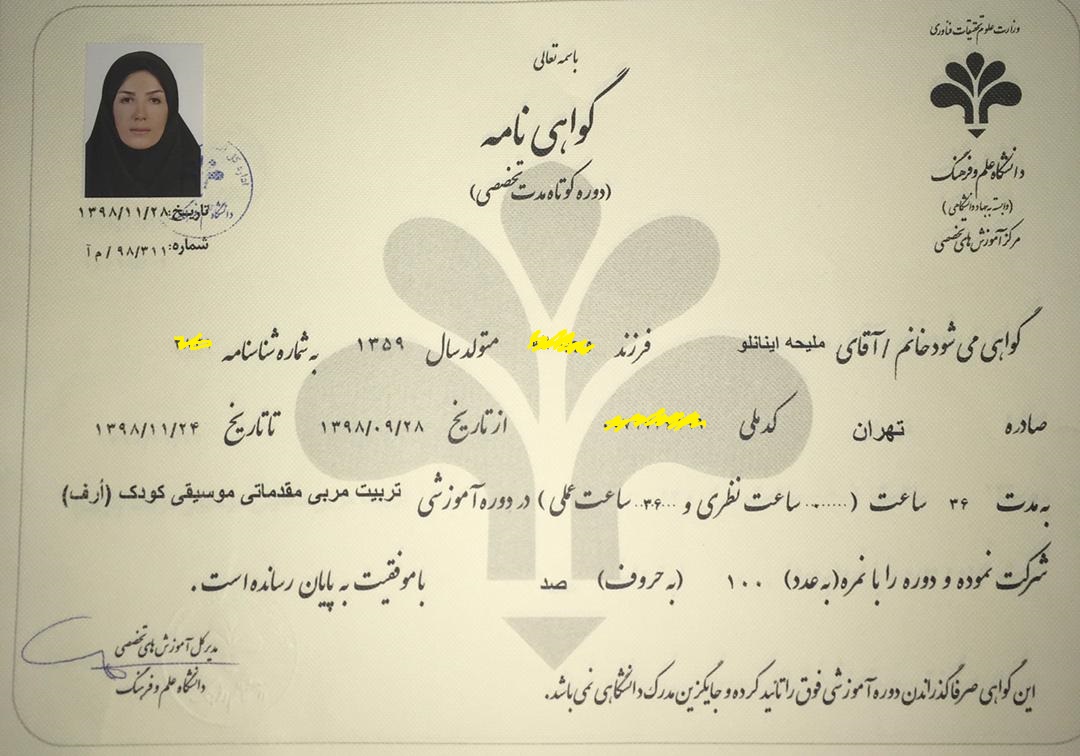 وزارت علوم تحقیقات فناوری
دانشگاه علم و فرهنگ
(وابسته به جهاد دانشگاهی)
مرکز آموزش های تخصصی
باسمه تعالی
گواهی نامه
(دوره کوتاه مدت تخصصی)
تاریخ: ۱۳۹۸/۱۱/۲۸
شماره: ۹۸/۳۱۱ / م آ
گواهی می شود خانم / آقای ملیحه اینانلو فرزند متولد سال ۱۳۵۹ به شماره شناسنامه
صادره تهران کد ملی از تاریخ ۱۳۹۸/۰۹/۲۸ تا تاریخ ۱۳۹۸/۱۱/۲۴
به مدت ۳۶ ساعت (...۰... ساعت نظری و ...۳۶... ساعت عملی) در دوره آموزشی تربیت مربی مقدماتی موسیقی کودک (اُرف)
شرکت نموده و دوره را با نمره (به عدد) ۱۰۰ (به حروف) صد با موفقیت به پایان رسانده است.
مدیر کل آموزش های تخصصی
دانشگاه علم و فرهنگ
این گواهی صرفا گذراندن دوره آموزشی فوق را تائید کرده و جایگزین مدرک دانشگاهی نمی باشد.